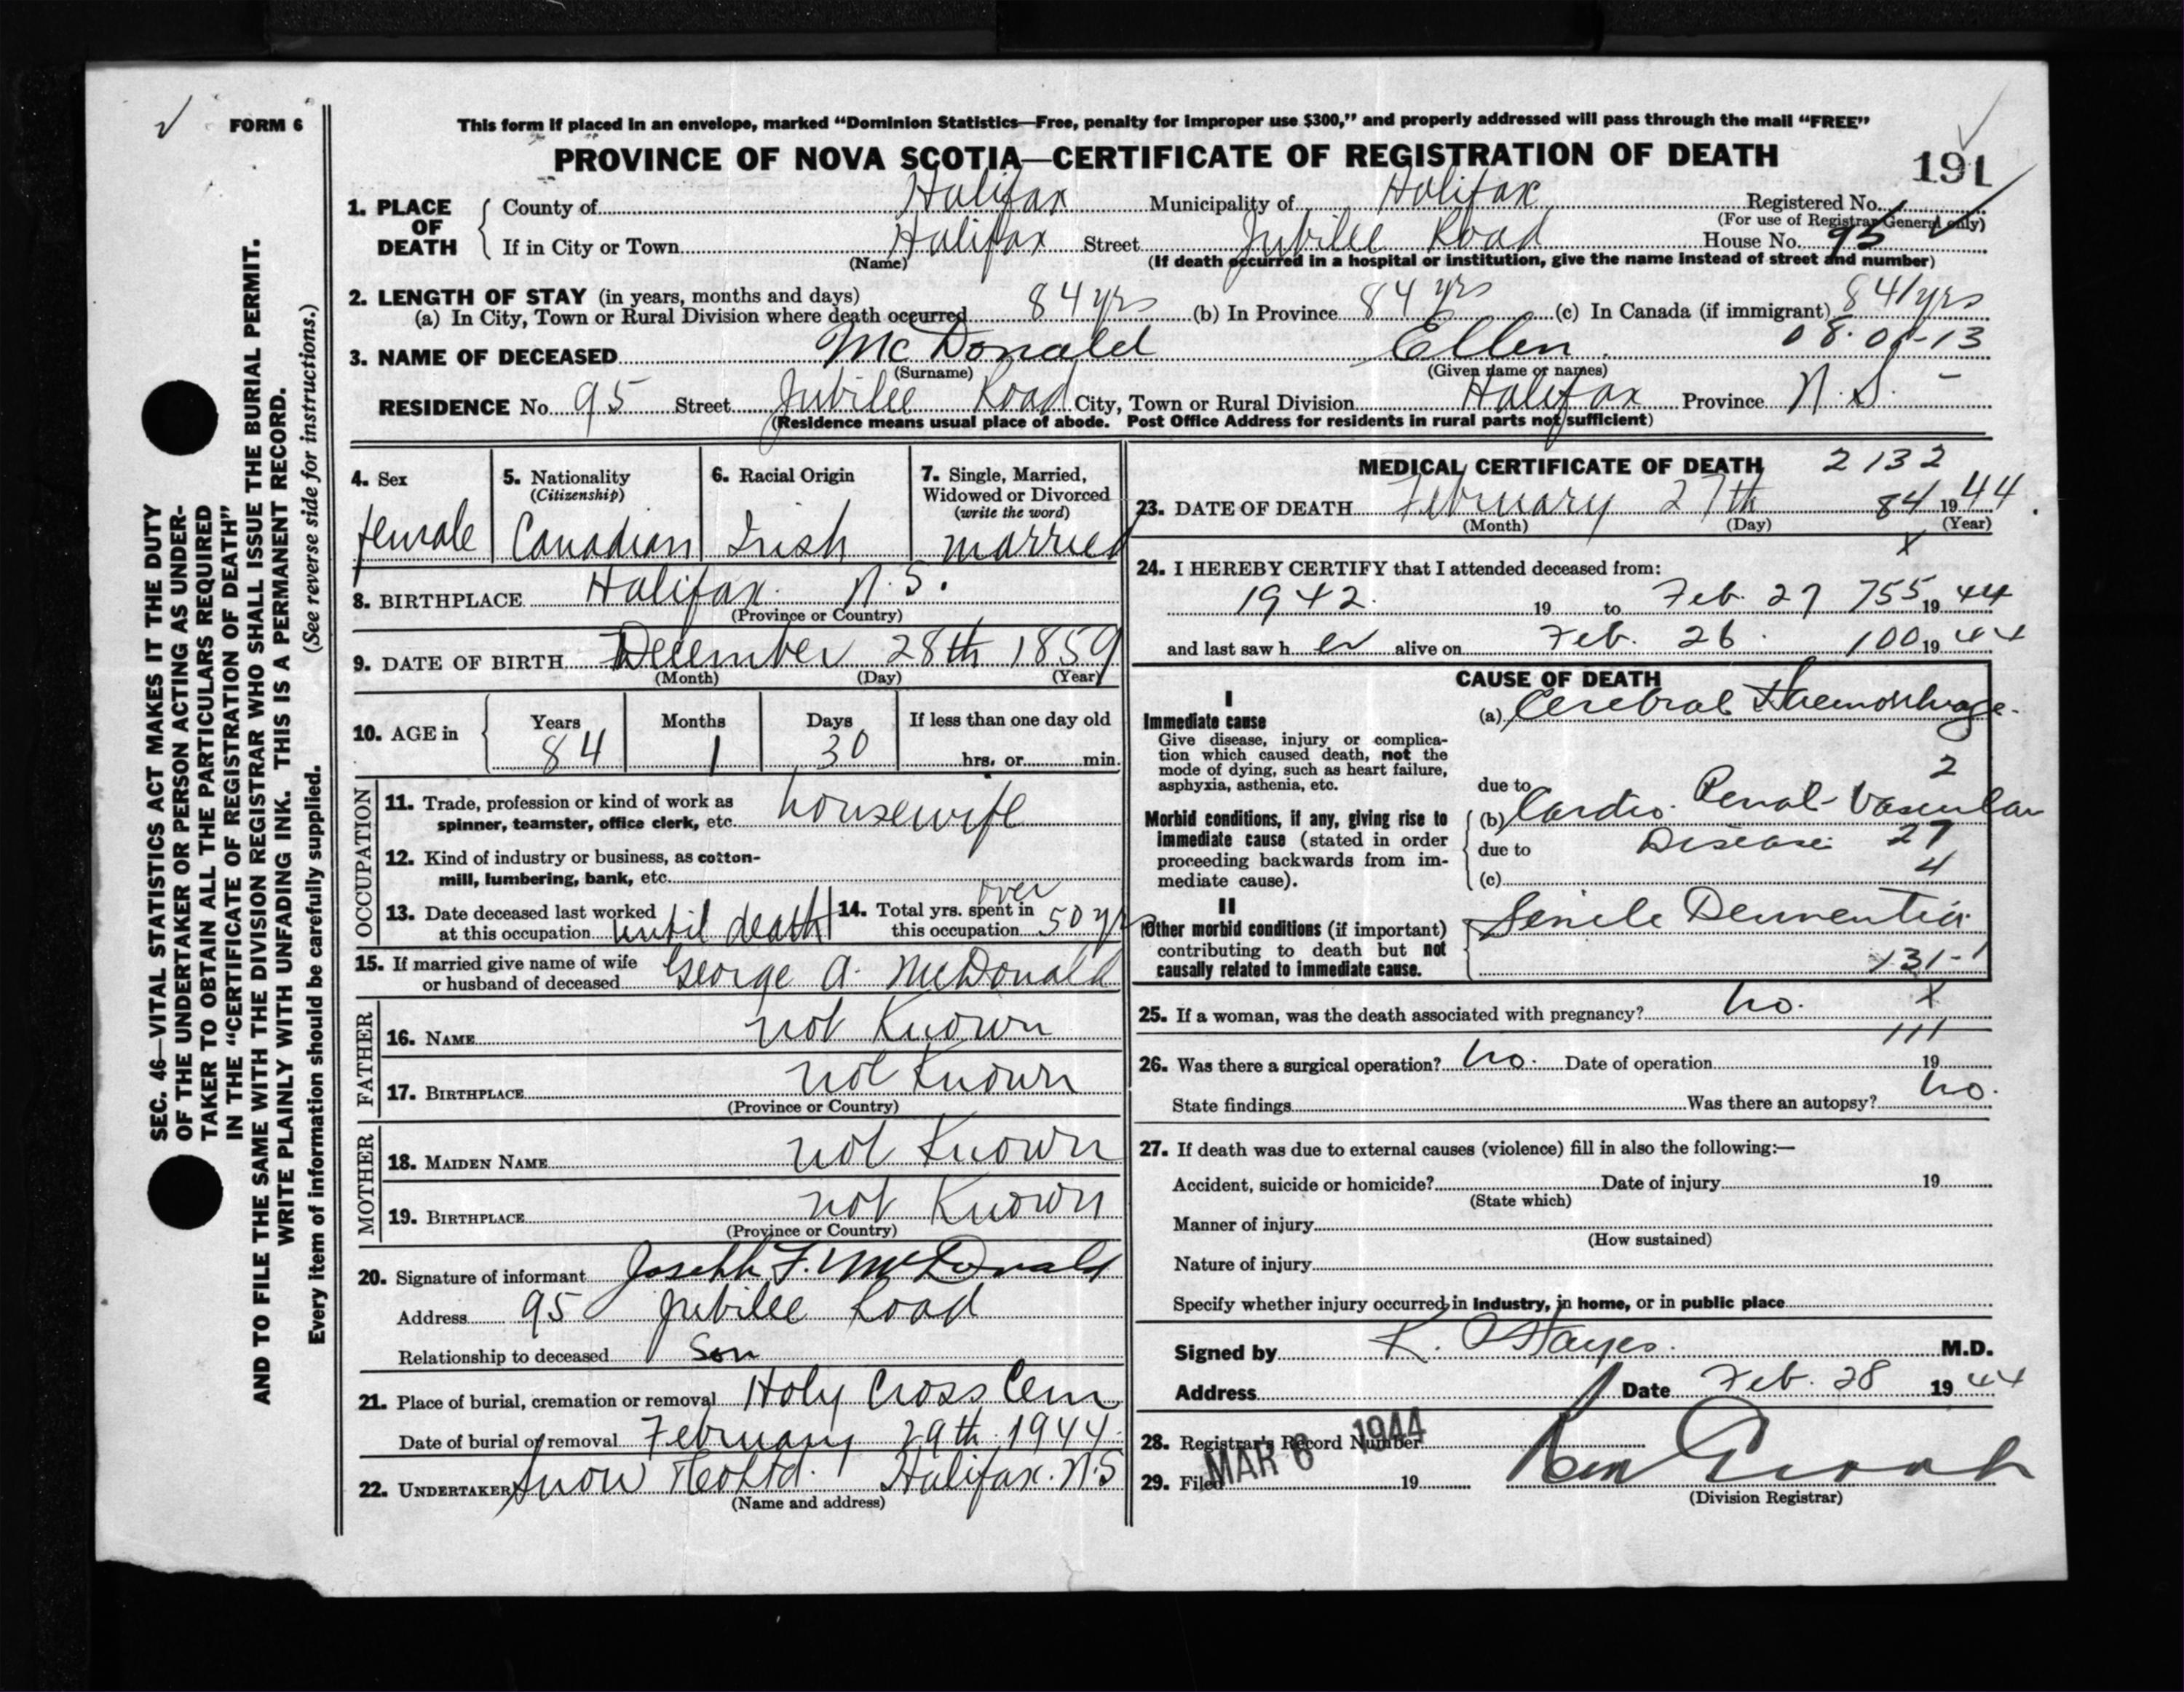 FORM 6
This form if placed in an envelope, marked “Dominion Statistics—Free, penalty for improper use $300,” and properly addressed will pass through the mail “FREE”
PROVINCE OF NOVA SCOTIA—CERTIFICATE OF REGISTRATION OF DEATH
191
1. PLACE OF DEATH
County of Halifax Municipality of Halifax Registered No.
(For use of Registrar General only)
If in City or Town Halifax Street Jubilee Road House No. 95
(Name) (If death occurred in a hospital or institution, give the name instead of street and number)
2. LENGTH OF STAY (in years, months and days)
(a) In City, Town or Rural Division where death occurred 84 yrs (b) In Province 84 yrs (c) In Canada (if immigrant) 84 yrs
3. NAME OF DECEASED McDonald Ellen
(Surname) (Given name or names)
RESIDENCE No. 95 Street Jubilee Road City, Town or Rural Division Halifax Province N.S.
(Residence means usual place of abode. Post Office Address for residents in rural parts not sufficient)
4. Sex
female
5. Nationality
(Citizenship)
Canadian
6. Racial Origin
Irish
7. Single, Married,
Widowed or Divorced
(write the word)
married
8. BIRTHPLACE Halifax. N.S.
(Province or Country)
9. DATE OF BIRTH December 28th 1859
(Month) (Day) (Year)
10. AGE in
Years Months Days If less than one day old
84 1 30 hrs. or min.
OCCUPATION
11. Trade, profession or kind of work as
spinner, teamster, office clerk, etc. housewife
12. Kind of industry or business, as cotton-
mill, lumbering, bank, etc.
13. Date deceased last worked
at this occupation until death
14. Total yrs. spent in
this occupation over 50 yrs
15. If married give name of wife
or husband of deceased George A. McDonald
FATHER
16. NAME not Known
17. BIRTHPLACE not Known
(Province or Country)
MOTHER
18. MAIDEN NAME not Known
19. BIRTHPLACE not Known
(Province or Country)
20. Signature of informant Joseph F. McDonald
Address 95 Jubilee Road
Relationship to deceased Son
21. Place of burial, cremation or removal Holy Cross Cem
Date of burial or removal February 29th 1944
22. UNDERTAKER Snow & Co Ltd. Halifax. N.S
(Name and address)
MEDICAL CERTIFICATE OF DEATH 2132
23. DATE OF DEATH February 27th 84 1944
(Month) (Day) (Year)
x
24. I HEREBY CERTIFY that I attended deceased from:
1942 19 to Feb. 27 755 19 44
and last saw h er alive on Feb. 26. 100 19 44
CAUSE OF DEATH
I
Immediate cause
Give disease, injury or complica-
tion which caused death, not the
mode of dying, such as heart failure,
asphyxia, asthenia, etc.
(a) Cerebral Haemorrhage.
2
due to
Morbid conditions, if any, giving rise to
immediate cause (stated in order
proceeding backwards from im-
mediate cause).
(b) Cardio-Renal-Vascular
due to Disease 27
4
(c)
II
Other morbid conditions (if important)
contributing to death but not
causally related to immediate cause.
Senile Dementia
131-1
25. If a woman, was the death associated with pregnancy? no. x
111
26. Was there a surgical operation? no. Date of operation 19
State findings Was there an autopsy? no.
27. If death was due to external causes (violence) fill in also the following:—
Accident, suicide or homicide? Date of injury 19
(State which)
Manner of injury
(How sustained)
Nature of injury
Specify whether injury occurred in industry, in home, or in public place
Signed by Hayes. M.D.
Address Date Feb. 28 19 44
28. Registrar's Record Number
MAR 6 1944
29. Filed 19
(Division Registrar)
SEC. 46—VITAL STATISTICS ACT MAKES IT THE DUTY
OF THE UNDERTAKER OR PERSON ACTING AS UNDER-
TAKER TO OBTAIN ALL THE PARTICULARS REQUIRED
IN THE “CERTIFICATE OF REGISTRATION OF DEATH”
AND TO FILE THE SAME WITH THE DIVISION REGISTRAR WHO SHALL ISSUE THE BURIAL PERMIT.
WRITE PLAINLY WITH UNFADING INK. THIS IS A PERMANENT RECORD.
Every item of information should be carefully supplied. (See reverse side for instructions.)